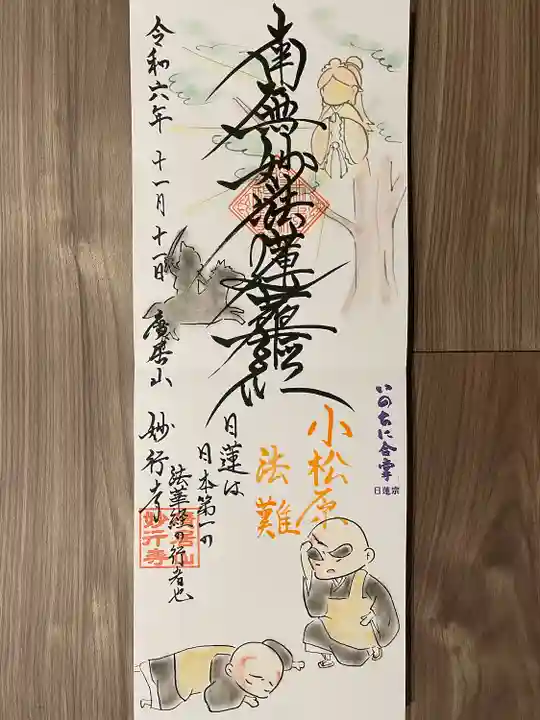 南無妙法蓮華経
いのちに合掌
日蓮宗
小松原
法難
日蓮は
日本第一の
法華経の行者也
令和六年 十一月十一日 廣栄山 妙行寺
妙行寺